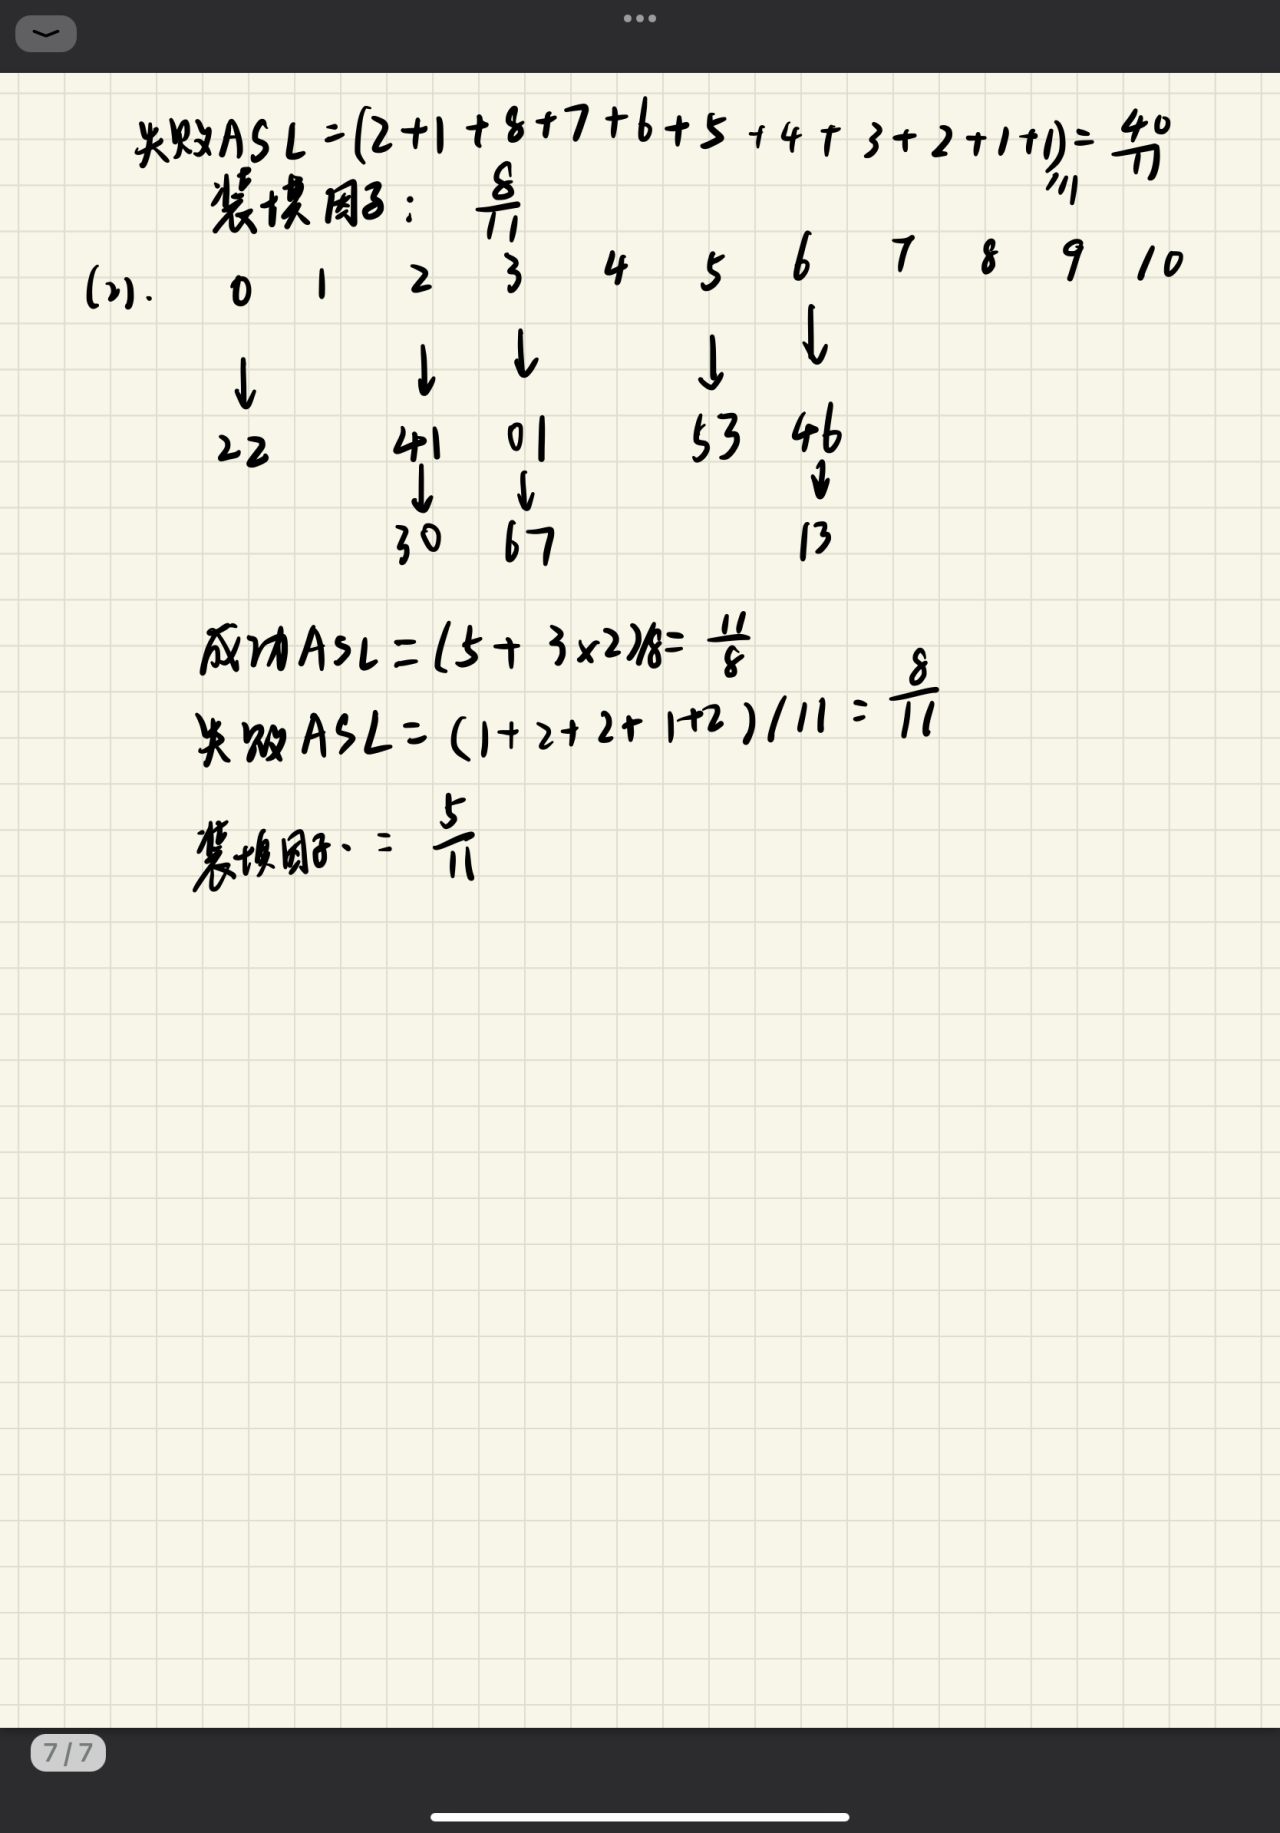 失败ASL=(2+1+8+7+6+5+4+3+2+1+1)/11=40/11
装填因子: 8/11
(2). 0 1 2 3 4 5 6 7 8 9 10
↓ ↓ ↓ ↓ ↓
22 41 01 53 46
↓ ↓ ↓
30 67 13
成功ASL=(5+3×2)/8=11/8
失败ASL=(1+2+2+1+2)/11=8/11
装填因子.=5/11
7/7